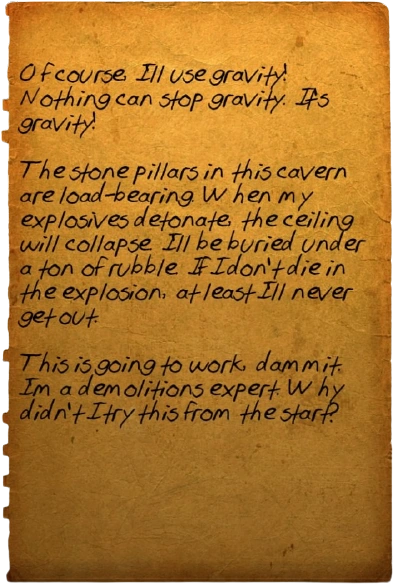 Of course. I'll use gravity!
Nothing can stop gravity. It's
gravity!
The stone pillars in this cavern
are load-bearing. When my
explosives detonate, the ceiling
will collapse. I'll be buried under
a ton of rubble. If I don't die in
the explosion, at least I'll never
get out.
This is going to work, dammit.
I'm a demolitions expert. Why
didn't I try this from the start?